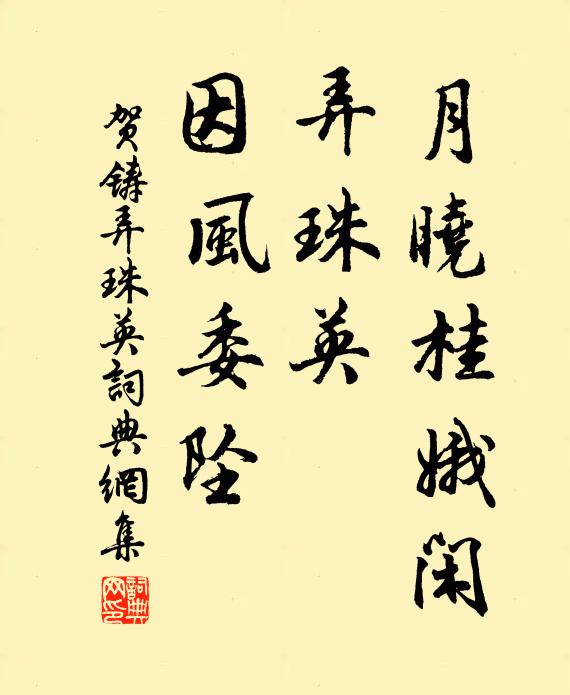 月曉桂娥閑
弄珠英
因風委坠
贺鑄弄珠英詞典網集
詞典网印